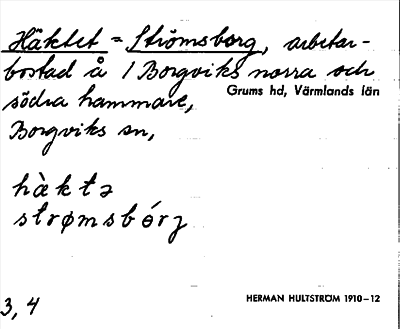 Häktet = Strömsborg, arbetar-
bostad å / Borgviks norra och
södra hammare, Grums hd, Värmlands län
Borgviks sn,
hàktə
strømsbórj
3, 4
HERMAN HULTSTRÖM 1910–12